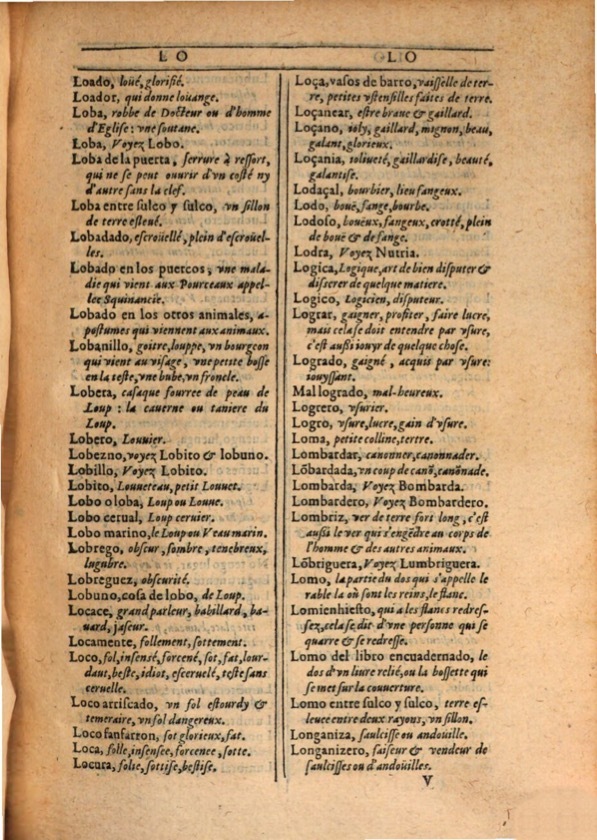 LO
LO
Loado, loüé, glorifié.
Loador, qui donne loüange.
Loba, robbe de Docteur ou d'homme
d'Eglise: vne soutane.
Loba, Voyez Lobo.
Loba de la puerta, serrure à ressort,
qui ne se peut ouurir d'vn costé ny
d'autre sans la clef.
Loba entre sulco y sulco, vn sillon
de terre esleué.
Lobadado, escroüellé, plein d'escroüel-
les.
Lobado en los puercos, vne mala-
die qui vient aux Pourceaux appel-
lee Squinancie.
Lobado en los otros animales, a-
postumes qui viennent aux animaux.
Lobanillo, goitre, louppe, vn bourgeon
qui vient au visage, vne petite bosse
en la teste, vne bube, vn froncle.
Lobera, casaque fourree de peau de
Loup: la cauerne ou taniere du
Loup.
Lobero, Louuier.
Lobezno, voyez Lobito & lobuno.
Lobillo, Voyez Lobito.
Lobito, Louueteau, petit Louuet.
Lobo o loba, Loup ou Louue.
Lobo cerual, Loup ceruier.
Lobo marino, le Loup ou Veau marin.
Lobrego, obscur, sombre, tenebreux,
lugubre.
Lobreguez, obscurité.
Lobuno, cosa de lobo, de Loup.
Locace, grand parleur, babillard, ba-
uard, jaseur.
Locamente, follement, sottement.
Loco, fol, insensé, forcené, sot, fat, lour-
daut, beste, idiot, esceruelé, teste sans
ceruelle.
Loco arriscado, vn sol estourdy &
temeraire, vn sol dangereux.
Loco fanfarron, sot glorieux, fat.
Loca, folle, insensee, forcenee, sotte.
Locura, folie, sottise, bestise.
Loça, vasos de barro, vaisselle de ter-
re, petites vstensilles faites de terre.
Loçanear, estre braue & gaillard.
Loçano, ioly, gaillard, mignon, beau,
galant, glorieux.
Loçania, ioliueté, gaillardise, beauté,
galantise.
Lodaçal, bourbier, lieu fangeux.
Lodo, bouë, fange, bourbe.
Lodoso, boueüx, fangeux, crotté, plein
de bouë & de fange.
Lodra, Voyez Nutria.
Logica, Logique, art de bien disputer &
discerer de quelque matiere.
Logico, Logicien, disputeur.
Lograr, gaigner, profiter, faire lucre,
mais cela se doit entendre par vsure,
c'est aussi iouyr de quelque chose.
Logrado, gaigné, acquis par vsure:
iouyssant.
Mal logrado, mal-heureux.
Logrero, vsurier.
Logro, vsure, lucre, gain d'vsure.
Loma, petite colline, tertre.
Lombardar, canonner, canonnader.
Lõbardada, vn coup de canõ, canõnade.
Lombarda, Voyez Bombarda.
Lombardero, Voyez Bombardero.
Lombriz, ver de terre fort long, c'est
aussi le ver qui s'engẽdre au corps de
l'homme & des autres animaux.
Lõbriguera, Voyez Lumbriguera.
Lomo, la partie du dos qui s'appelle le
rable la où sont les reins, le flanc.
Lomienhiesto, qui a les flancs redres-
sez, cela se dit d'vne personne qui se
quarre & se redresse.
Lomo del libro encuadernado, le
dos d'vn liure relié, ou la bossette qui
se met sur la couuerture.
Lomo entre sulco y sulco, terre es-
leuee entre deux rayons, vn sillon.
Longaniza, saulcisse ou andouille.
Longanizero, faiseur & vendeur de
saulcisses ou d'andoüilles.
V